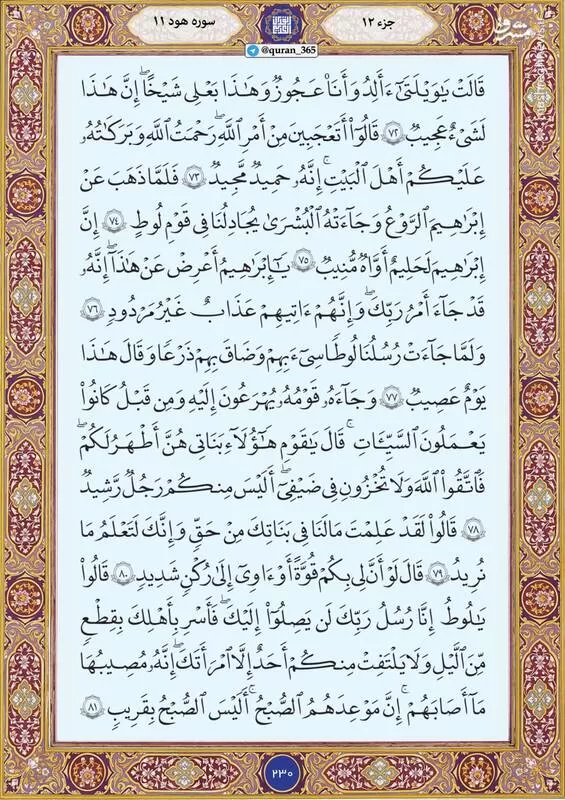 جزء ۱۲
سوره هود ۱۱
مشرق
@quran_365
قَالَتْ يَٰوَيْلَتَىٰٓ ءَأَلِدُ وَأَنَا۠ عَجُوزٌ وَهَٰذَا بَعْلِى شَيْخًا ۖ إِنَّ هَٰذَا
لَشَىْءٌ عَجِيبٌ ۷۲ قَالُوٓا۟ أَتَعْجَبِينَ مِنْ أَمْرِ ٱللَّهِ ۖ رَحْمَتُ ٱللَّهِ وَبَرَكَٰتُهُۥ
عَلَيْكُمْ أَهْلَ ٱلْبَيْتِ ۚ إِنَّهُۥ حَمِيدٌ مَّجِيدٌ ۷۳ فَلَمَّا ذَهَبَ عَنْ
إِبْرَٰهِيمَ ٱلرَّوْعُ وَجَآءَتْهُ ٱلْبُشْرَىٰ يُجَٰدِلُنَا فِى قَوْمِ لُوطٍ ۷۴ إِنَّ
إِبْرَٰهِيمَ لَحَلِيمٌ أَوَّٰهٌ مُّنِيبٌ ۷۵ يَٰٓإِبْرَٰهِيمُ أَعْرِضْ عَنْ هَٰذَآ ۖ إِنَّهُۥ
قَدْ جَآءَ أَمْرُ رَبِّكَ ۖ وَإِنَّهُمْ ءَاتِيهِمْ عَذَابٌ غَيْرُ مَرْدُودٍ ۷۶
وَلَمَّا جَآءَتْ رُسُلُنَا لُوطًا سِىٓءَ بِهِمْ وَضَاقَ بِهِمْ ذَرْعًا وَقَالَ هَٰذَا
يَوْمٌ عَصِيبٌ ۷۷ وَجَآءَهُۥ قَوْمُهُۥ يُهْرَعُونَ إِلَيْهِ وَمِن قَبْلُ كَانُوا۟
يَعْمَلُونَ ٱلسَّيِّـَٔاتِ ۚ قَالَ يَٰقَوْمِ هَٰٓؤُلَآءِ بَنَاتِى هُنَّ أَطْهَرُ لَكُمْ ۖ
فَٱتَّقُوا۟ ٱللَّهَ وَلَا تُخْزُونِ فِى ضَيْفِىٓ ۖ أَلَيْسَ مِنكُمْ رَجُلٌ رَّشِيدٌ
۷۸ قَالُوا۟ لَقَدْ عَلِمْتَ مَا لَنَا فِى بَنَاتِكَ مِنْ حَقٍّ وَإِنَّكَ لَتَعْلَمُ مَا
نُرِيدُ ۷۹ قَالَ لَوْ أَنَّ لِى بِكُمْ قُوَّةً أَوْ ءَاوِىٓ إِلَىٰ رُكْنٍ شَدِيدٍ ۸۰ قَالُوا۟
يَٰلُوطُ إِنَّا رُسُلُ رَبِّكَ لَن يَصِلُوٓا۟ إِلَيْكَ ۖ فَأَسْرِ بِأَهْلِكَ بِقِطْعٍ
مِّنَ ٱلَّيْلِ وَلَا يَلْتَفِتْ مِنكُمْ أَحَدٌ إِلَّا ٱمْرَأَتَكَ ۖ إِنَّهُۥ مُصِيبُهَا
مَآ أَصَابَهُمْ ۚ إِنَّ مَوْعِدَهُمُ ٱلصُّبْحُ ۚ أَلَيْسَ ٱلصُّبْحُ بِقَرِيبٍ ۸۱
۲۳۰